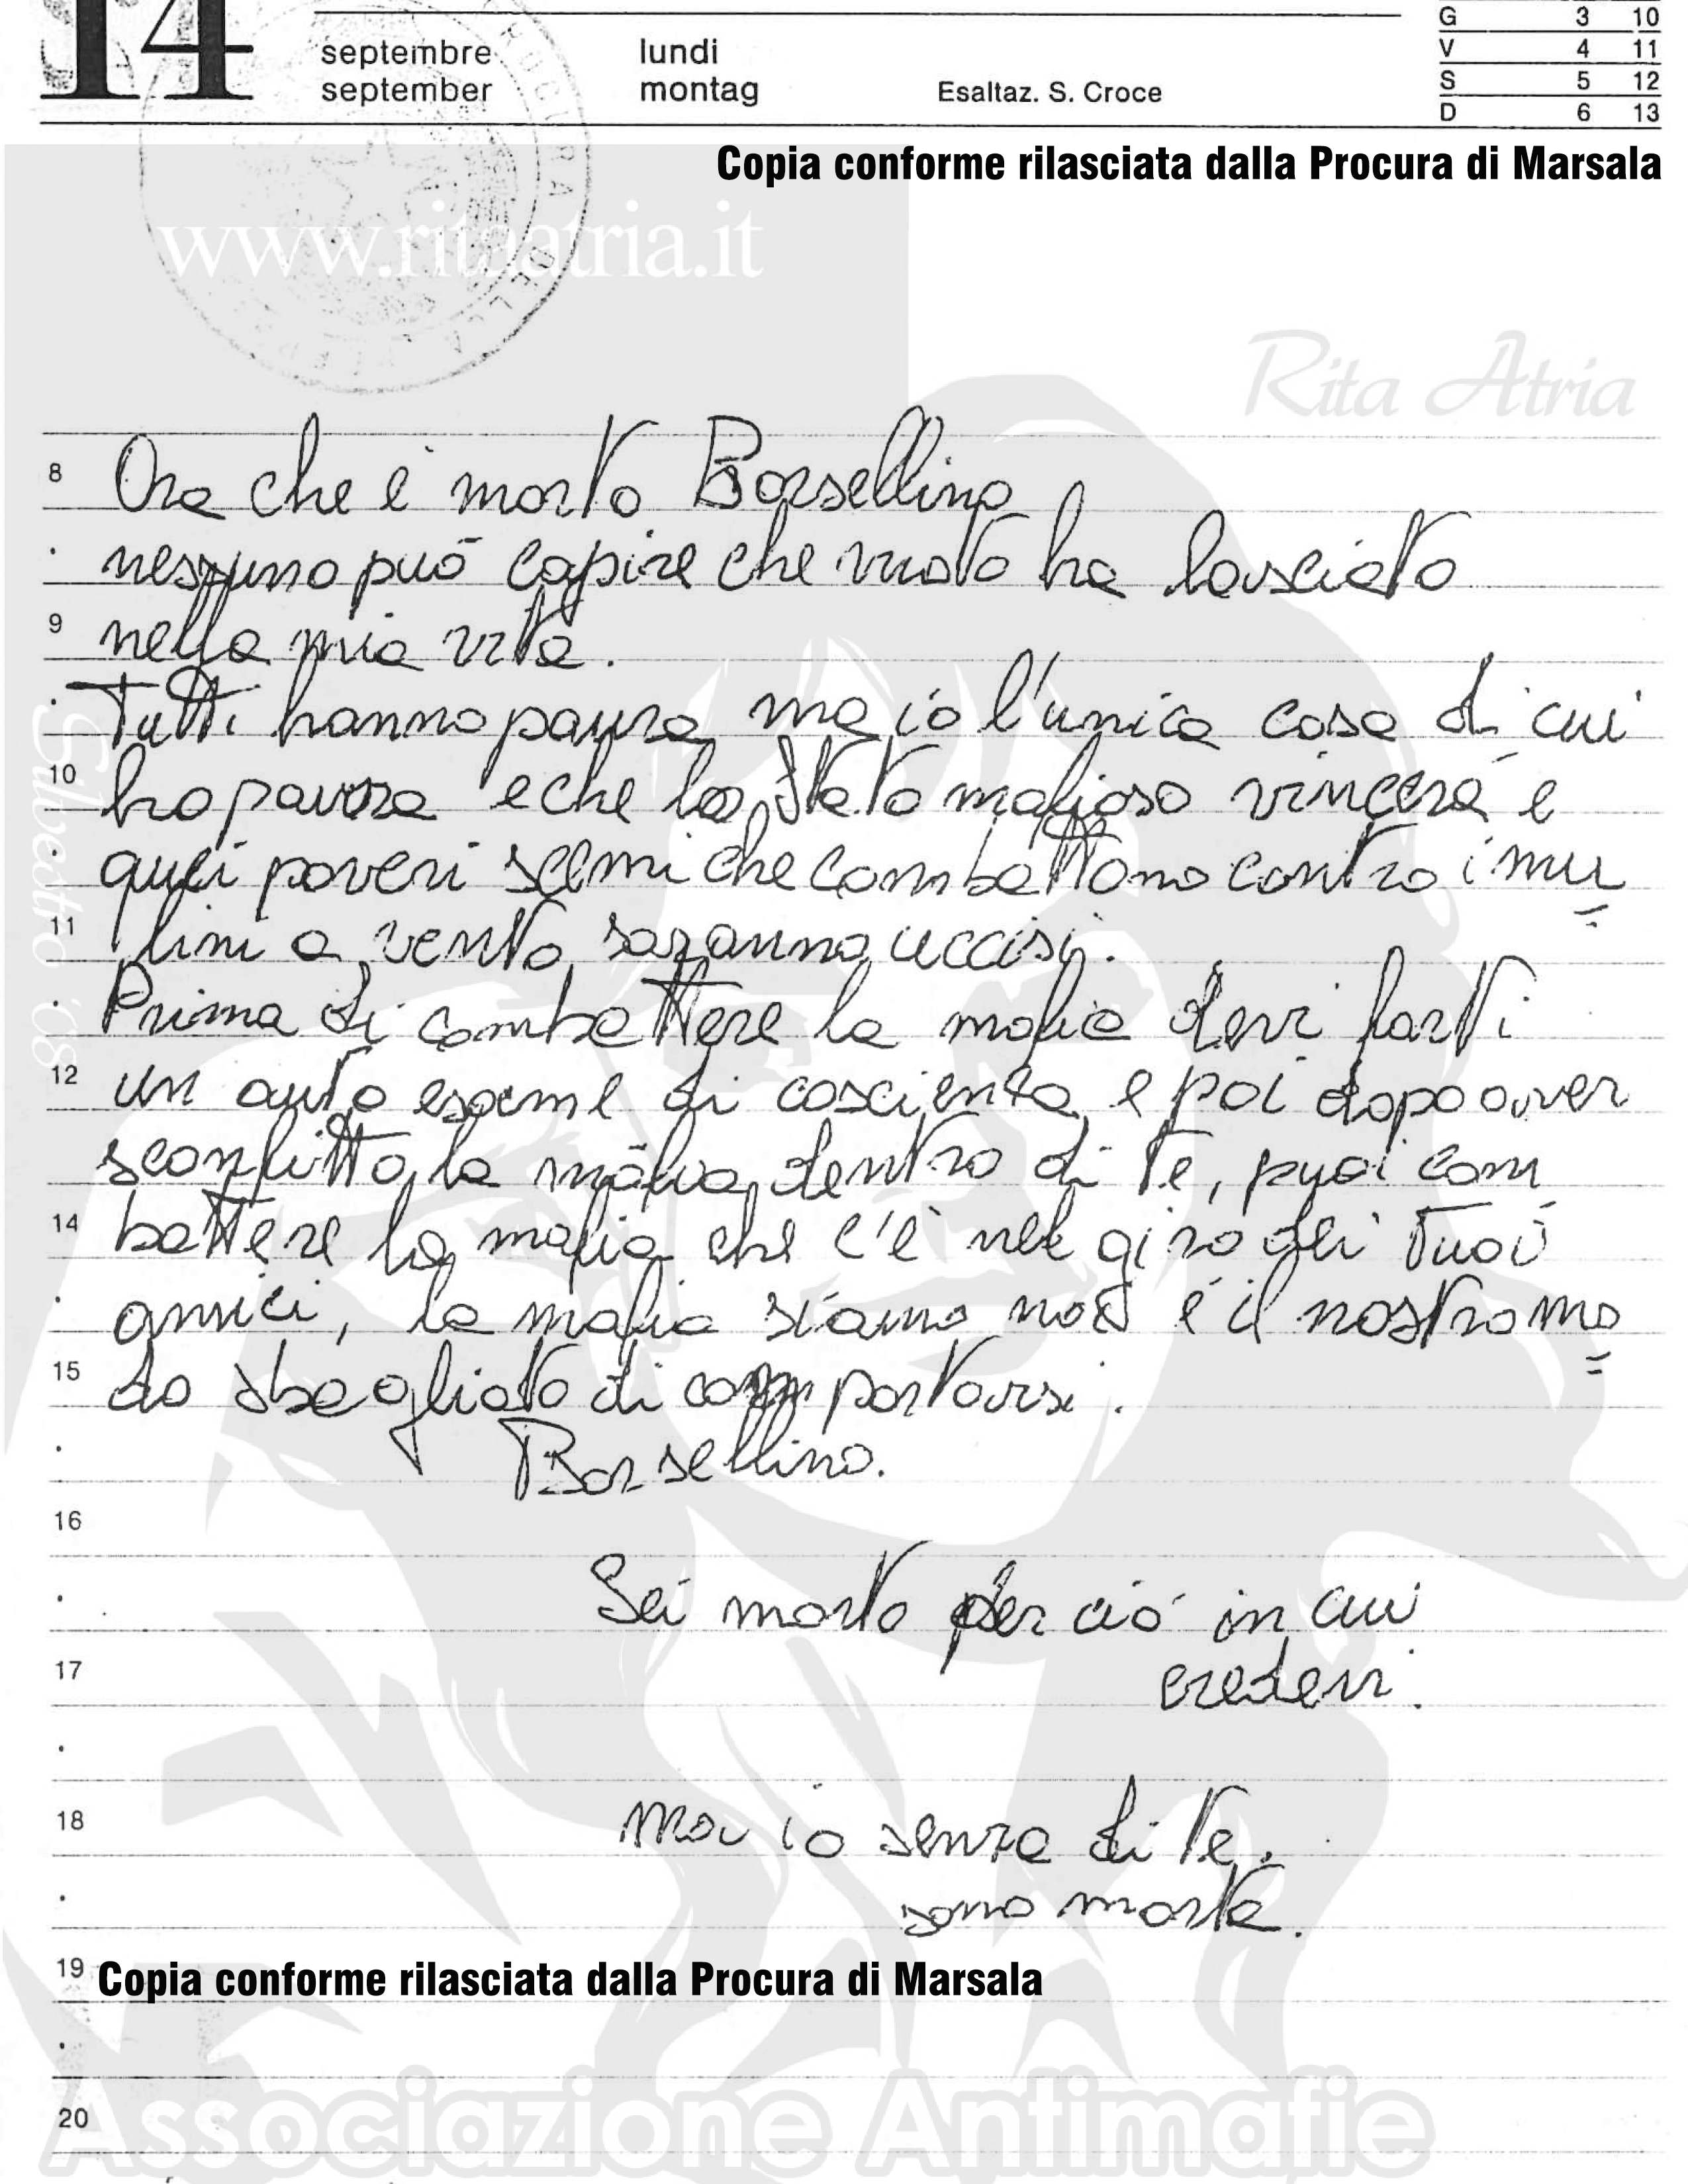 14
septembre
september
lundi
montag
Esaltaz. S. Croce
G 3 10
V 4 11
S 5 12
D 6 13
Copia conforme rilasciata dalla Procura di Marsala
www.ritaatria.it
Rita Atria
8 Ora che è morto Borsellino
nessuno può capire che vuoto ha lasciato
9 nella mia vita.
Tutti hanno paura ma io l'unica cosa di cui
10 ho paura è che lo Stato mafioso vincerà e
quei poveri scemi che combattono contro i mu
11 lini a vento saranno uccisi.
Prima di combattere la mafia devi farti
12 un auto esame di coscienza e poi dopo aver
sconfitto la mafia dentro di te, puoi com
14 battere la mafia che c'è nel giro dei tuoi
amici, la mafia siamo noi è il nostro mo
=
15 do sbagliato di comportarsi.
Borsellino.
16
Sei morto per ciò in cui
17
credevi.
18 Ma io senza di te
sono morta.
19 Copia conforme rilasciata dalla Procura di Marsala
20
Associazione Antimafie